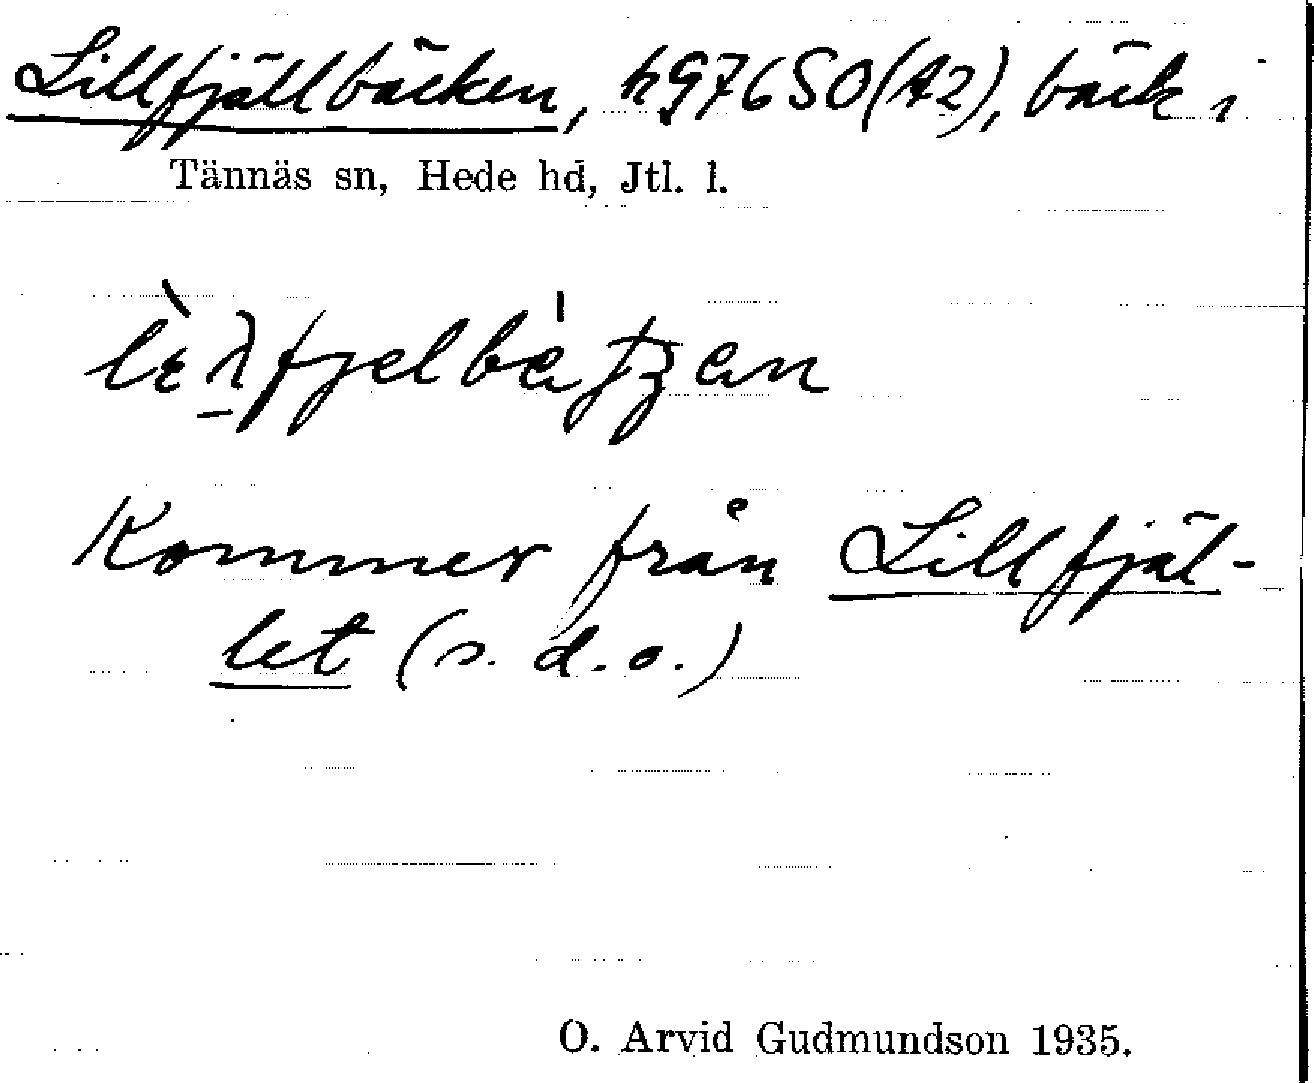 Lillfjällbäcken, h976SO(A2), bäck i
Tännäs sn, Hede hd, Jtl. l.
Kommer från Lillfjäl-
let (s. d. o.)
O. Arvid Gudmundson 1935.